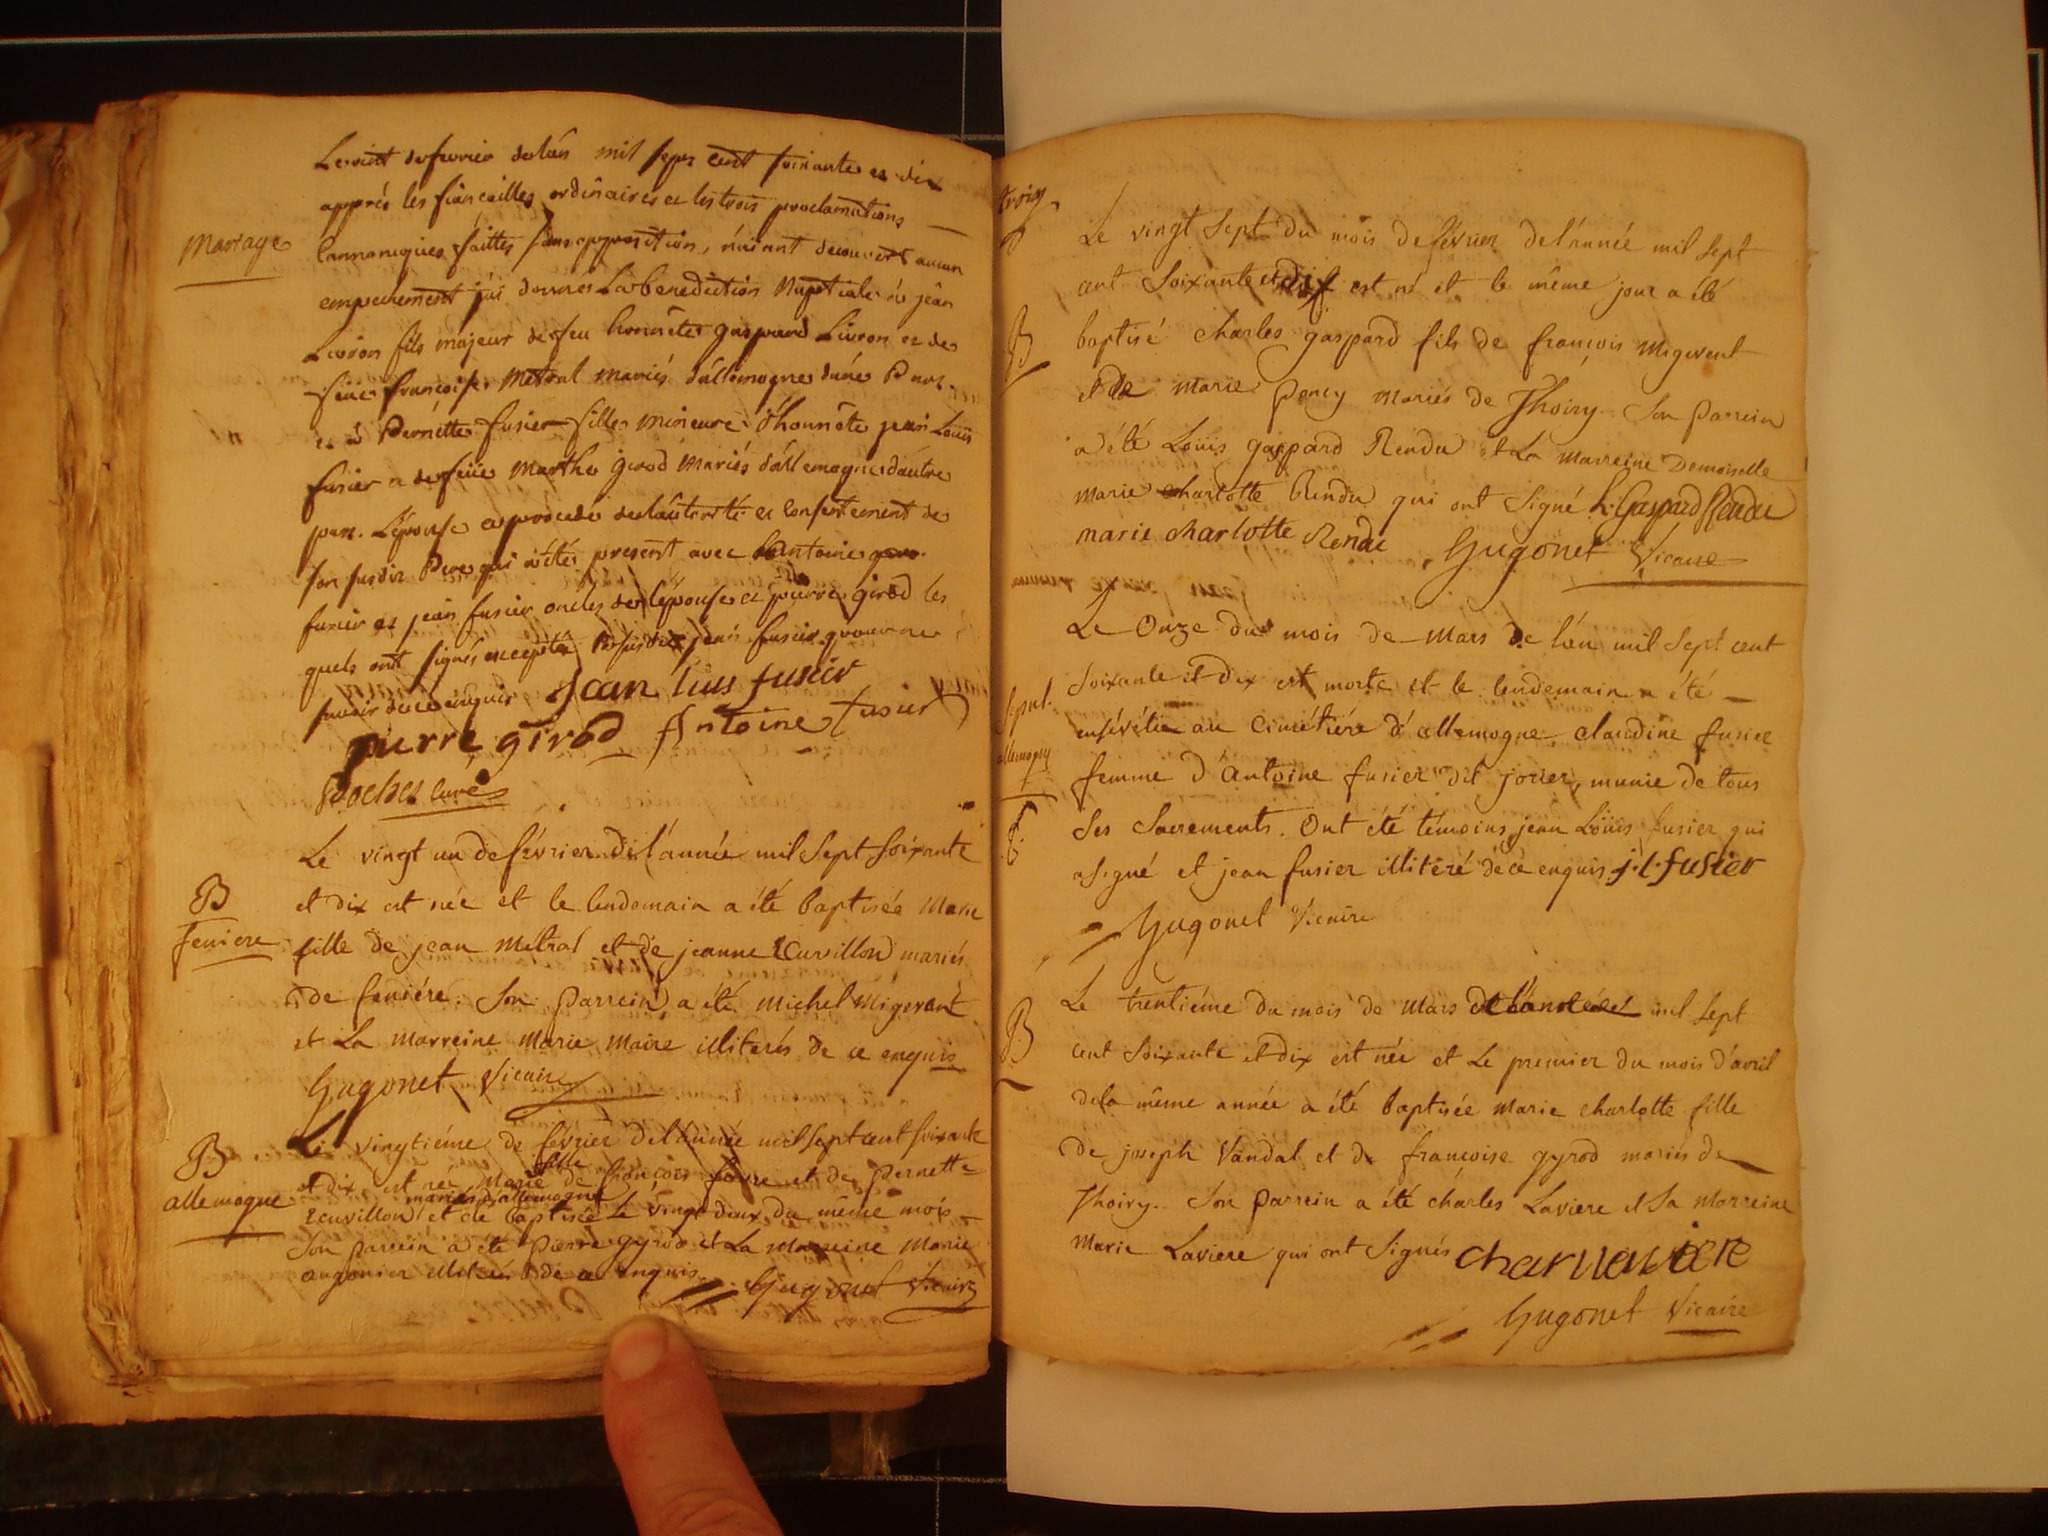 Le vint de fevrier de l'an mil sept cent soixante et dix
apprés les fiançailles ordinaires et les trois proclamations
Mariage
cannoniques faittes sans opposition, n'aiant decouvert aucun
empechement j'ai donné la benediction Nuptiale à jean
Livron fils majeur de feu honnête gaspard Livron et de
feüe françoise Metral mariés d'allemogne d'une Part
et à Pernette fusier fille mineure d'honnête jean Loüis
fusier et de feüe Marthe girod Mariés d'allemogne d'autre
part. L'épouse a procedé de l'autorité et consentement de
son susdit Pere qui a été present avec antoine
fusier et jean fusier oncles de l'épouse et pierre girod les
quels ont signés excepté le susdit jean fusier pour ne
savoir de ce enquis Jean luis fusier
pierre girod Antoine fusier
Roches curé
Le vingt un de février de l'année mil sept soixante
B
feniere
et dix est née et le lendemain a été baptisée Marie
fille de jean Metral et de jeanne Ecuvillon mariés
de feniére. Son parrein a été Michel Migerant
et La marreine Marie Maire illiterés de ce enquis
Gugonet Vicaire
B
allemogne
Le vingtiéme de février de l'année mil sept cent soixante
fille
et dix est née Marie de françois favre et de Pernette
mariés d'allemogne
Ecuvillon et été baptisée le vingt deux du même mois
Son parrein a été Pierre gyrod et La Marreine Marie
illiterés de ce enquis. Gugonet Vicaire
Le vingt sept du mois de février de l'année mil sept
cent soixante et dix est né et le même jour a été
B
baptisé charles gaspard fils de françois Migerent
et de marie Pency mariés de Thoiry. Son parrein
a été Loüis gaspard Rendu et La marreine Demoiselle
marie charlotte Rendu qui ont Signé L: Gaspard Rendu
marie charlotte Rendu Gugonet Vicaire
Le Onze du mois de Mars de l'an mil sept cent
Sepul.
allemogne
soixante et dix est morte et le lendemain a été
ensévélie au cimétiére d'allemogne claudine fusier
femme d'antoine fusier dit jorier, munie de tous
Ses Sacrements. Ont été témoins jean Loüis fusier qui
a signé et jean fusier illitéré de ce enquis j. l. fusier
Gugonet Vicaire
B
Le trentiéme du mois de Mars de l'année mil sept
cent soixante et dix est née et Le premier du mois d'avril
de la même année a été baptisée Marie charlotte fille
de joseph Vandal et de françoise gyrod mariés de
Thoiry. Son parrein a été charles Laviere et Sa Marreine
Marie Laviere qui ont Signés
Gugonet Vicaire